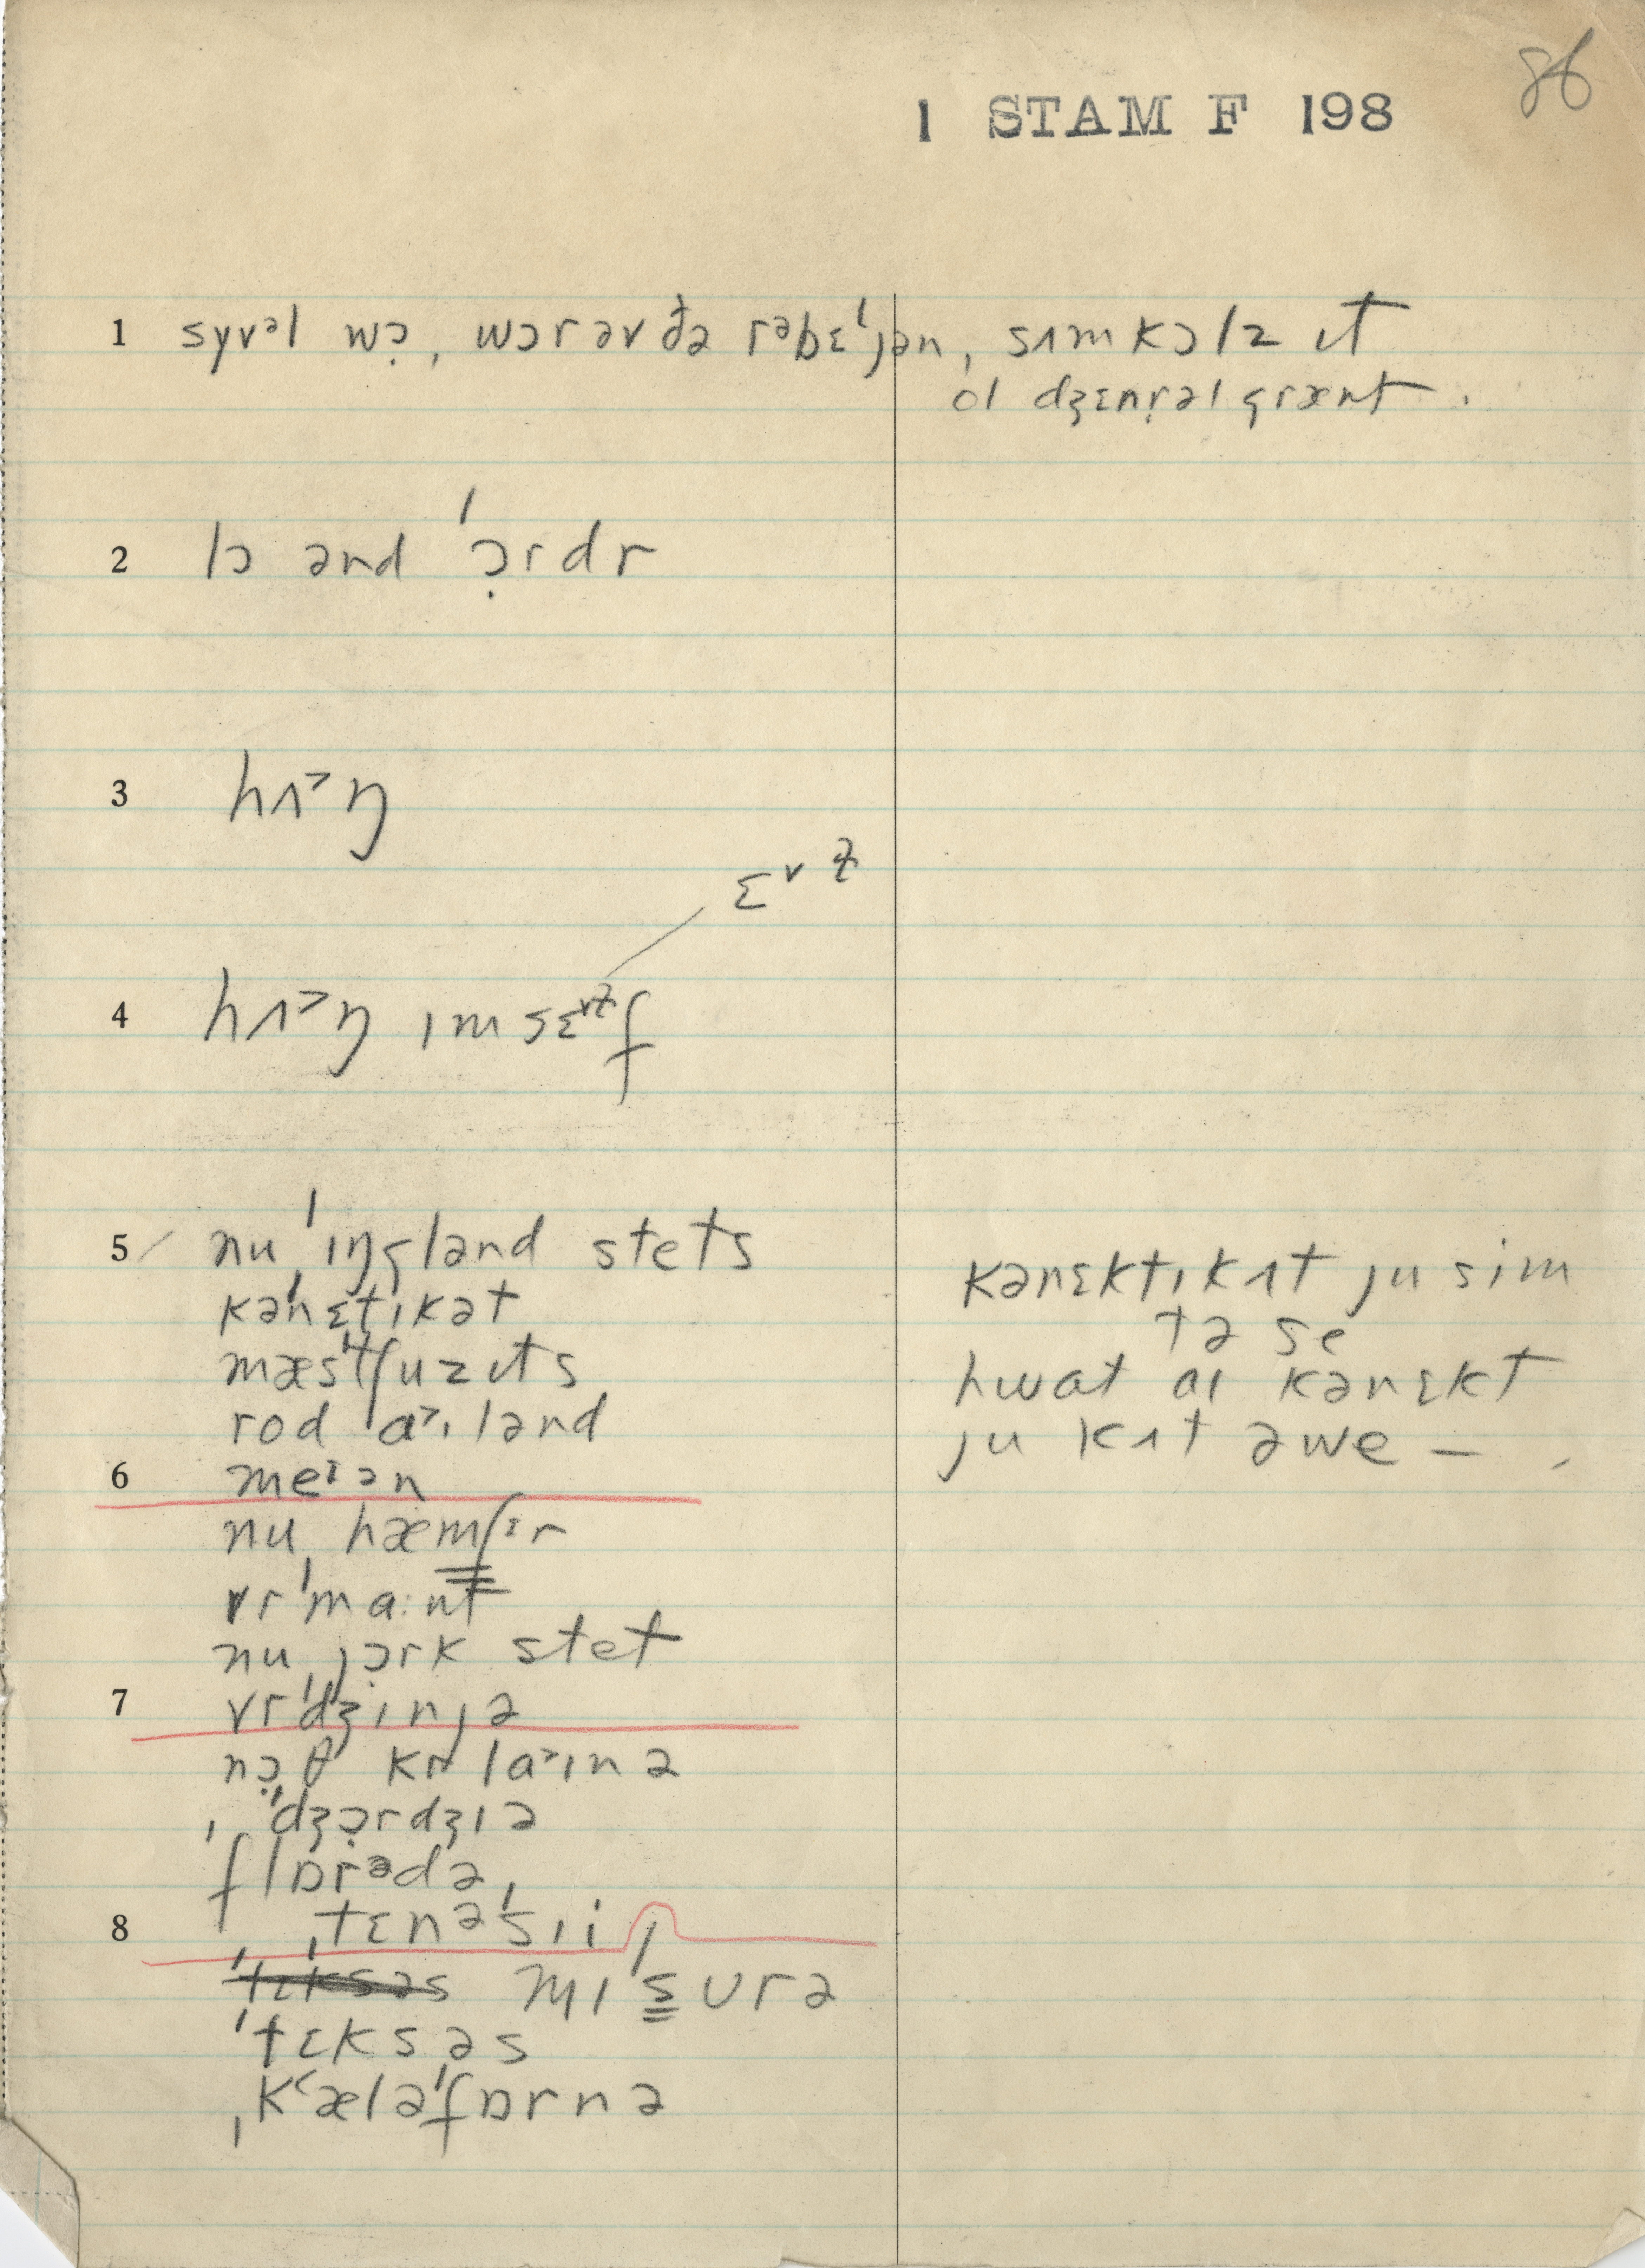 86
1 STAM F 198
1 syvᵊl wɔ̣, wɔr əv ðə rᵊbɛˈjən, sʌm kɔlz ɪt
ol dʒɛnr̩əl grænt.
2 lɔ ənd ˈɔ̣rdr
3 hʌ˃ŋ
ɛᵛ ɫ
4 hʌ˃ŋ ɪmsɛᵛᶻf
5 nu ˈɪŋglənd stets
kəˈnɛtɪkət
mæsˈtʃuzɪts
rod ˈa˃ɪlənd
6 meᶦən
nu ˌhæmʃᶦr
vrˈma:nt
nu ˌjɔ̣rk stet
7 vrˈdʒɪnjə
nɔ̣θ krla˃ɪnə
ˌˈdʒɔ̣rdʒɪə
flɒrᵊdə
8 ˌtɛnəˈsɪi
mɪˈsʊrə
ˈtɛksəs
ˌkʻæləˈfɒrnə
kənɛktɪkʌt ju sim
tə se
hwat aɪ kənɛkt
ju kʌt əwe –.